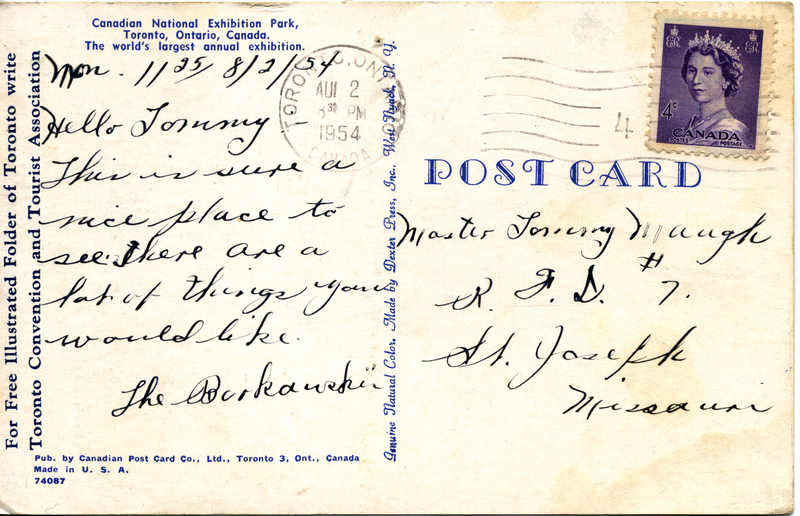 Canadian National Exhibition Park,
Toronto, Ontario, Canada.
The world's largest annual exhibition.
Mon. 11 25 8/2/54
Hello Tommy -
This is sure a
nice place to
see. There are a
lot of things you
would like.
The Borkowskii
For Free Illustrated Folder of Toronto write
Toronto Convention and Tourist Association
Pub. by Canadian Post Card Co., Ltd., Toronto 3, Ont., Canada
Made in U. S. A.
74087
Genuine Natural Color. Made by Dexter Press, Inc., West Nyack, N. Y.
TORONTO, ONT
AUG 2
30 PM
1954
CANADA
4
E II R E II R
4c
CANADA
POSTES POSTAGE
POST CARD
Master Tommy Maugh
R. F. D. #7.
St. Joseph
Missouri